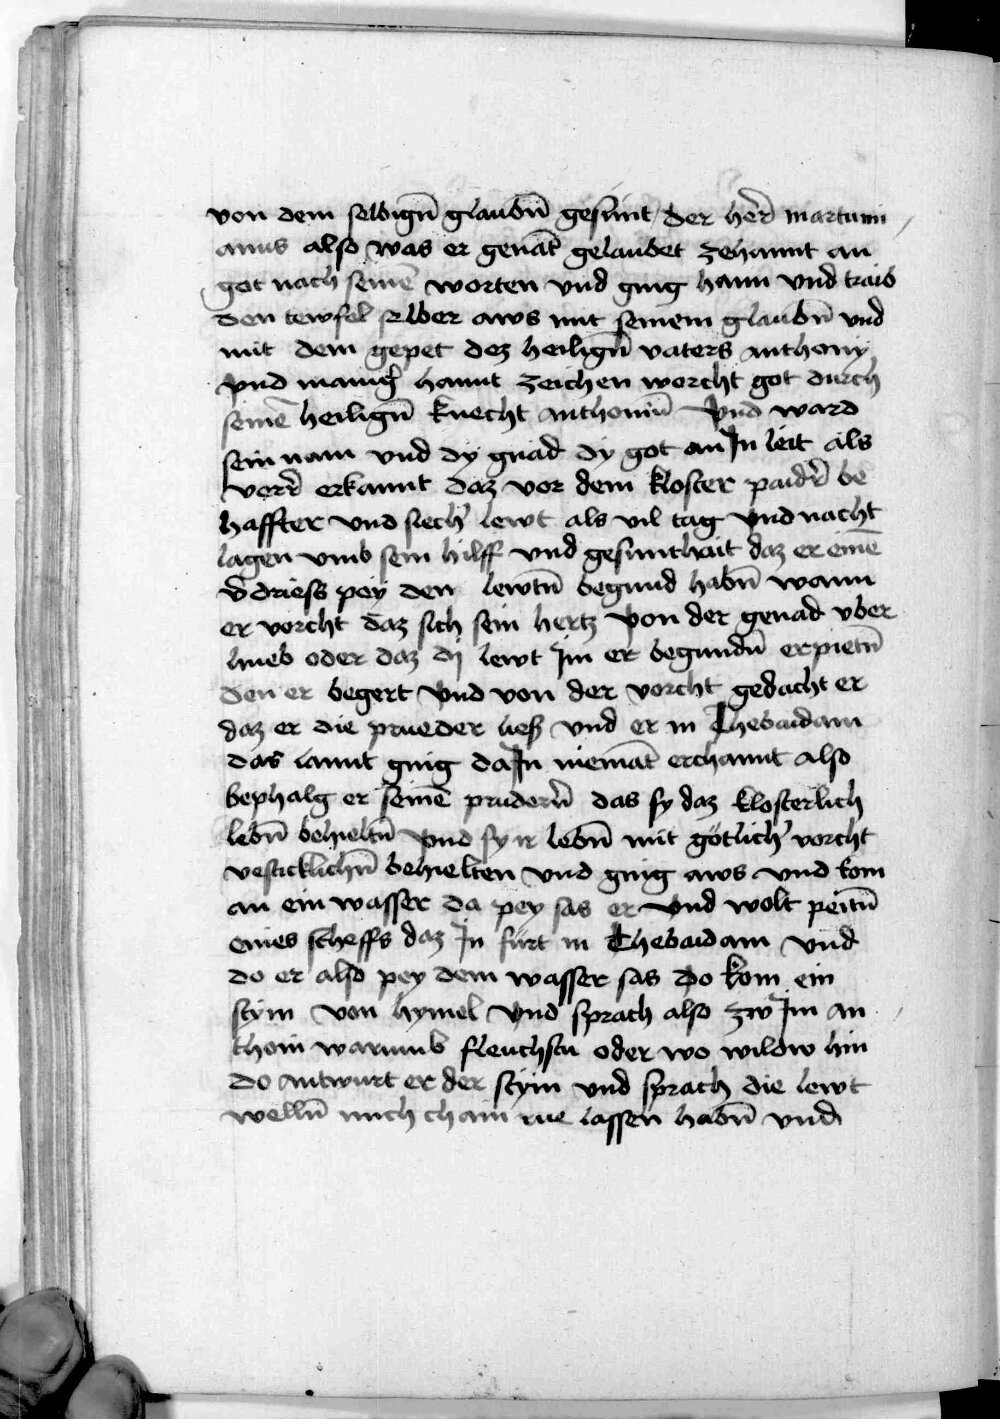 von dem selbigñ glaubñ gesunt / der her̄r martimi
anus also was er genāt gelaubet zehannt an
got nach seinē worten vnd ging hann vnd traib
den tewfel selber aws mit seinem glaubñ vnd
mit dem gepet dez heiligñ vaters anthonij
vnd manig̛ hannt zeichen worcht got durch
seinē heiligñ knecht anthoniū vnd ward
sein nam vnd dy gnad dy got an Jn leit als
verr̄ erkannt daz vor dem kloster paidr̄ be
haffter vnd siech̛ lewt als vil tag vnd nacht
lagen vmb sein hilff vnd gesunthait daz er einē
v̄driess pey den lewtñ begund habñ wann
er vorcht daz sich sein hertz von der genad vber
hueb oder daz dij lewt Jm er begundñ erpietñ
den er begert vnd von der vorcht gedacht er
daz er die prueder liess vnd er in Thebaidam
das lannt ging da Jn niemāt erchannt also
bephalg er seinē pruderñ das sy daz klosterlich
lebñ behieltñ vnd sy ir lebñ mit götlich̛ vorcht
vesticklichñ behielten vnd ging aws vnd kom
an ein wasser da pey sas er vnd wolt peitñ
eines scheffs daz Jn fürt in Thebaidam vnd
do er also pey dem wasser sas do kom ein
stym von hymel vnd sprach also zw Jm an
thoni warumb fleuchstu oder wo wildw hin
do antwurt er der stym vnd sprach die lewt
wellñ mich chain rue lassen habñ vnd